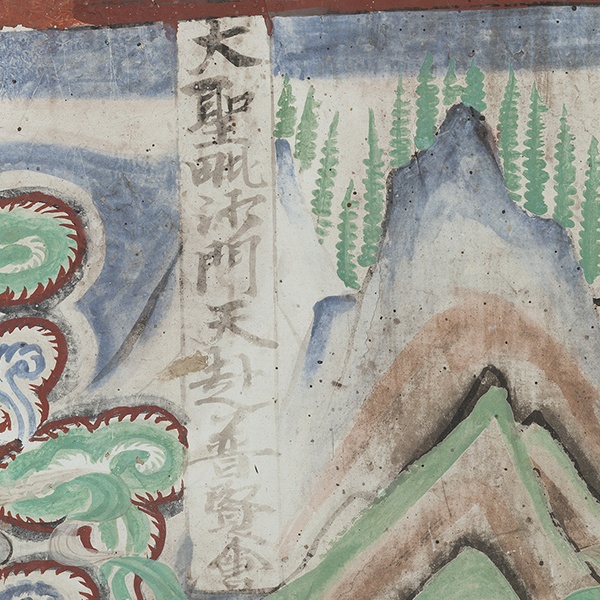 大聖毗沙門天赴普賢會